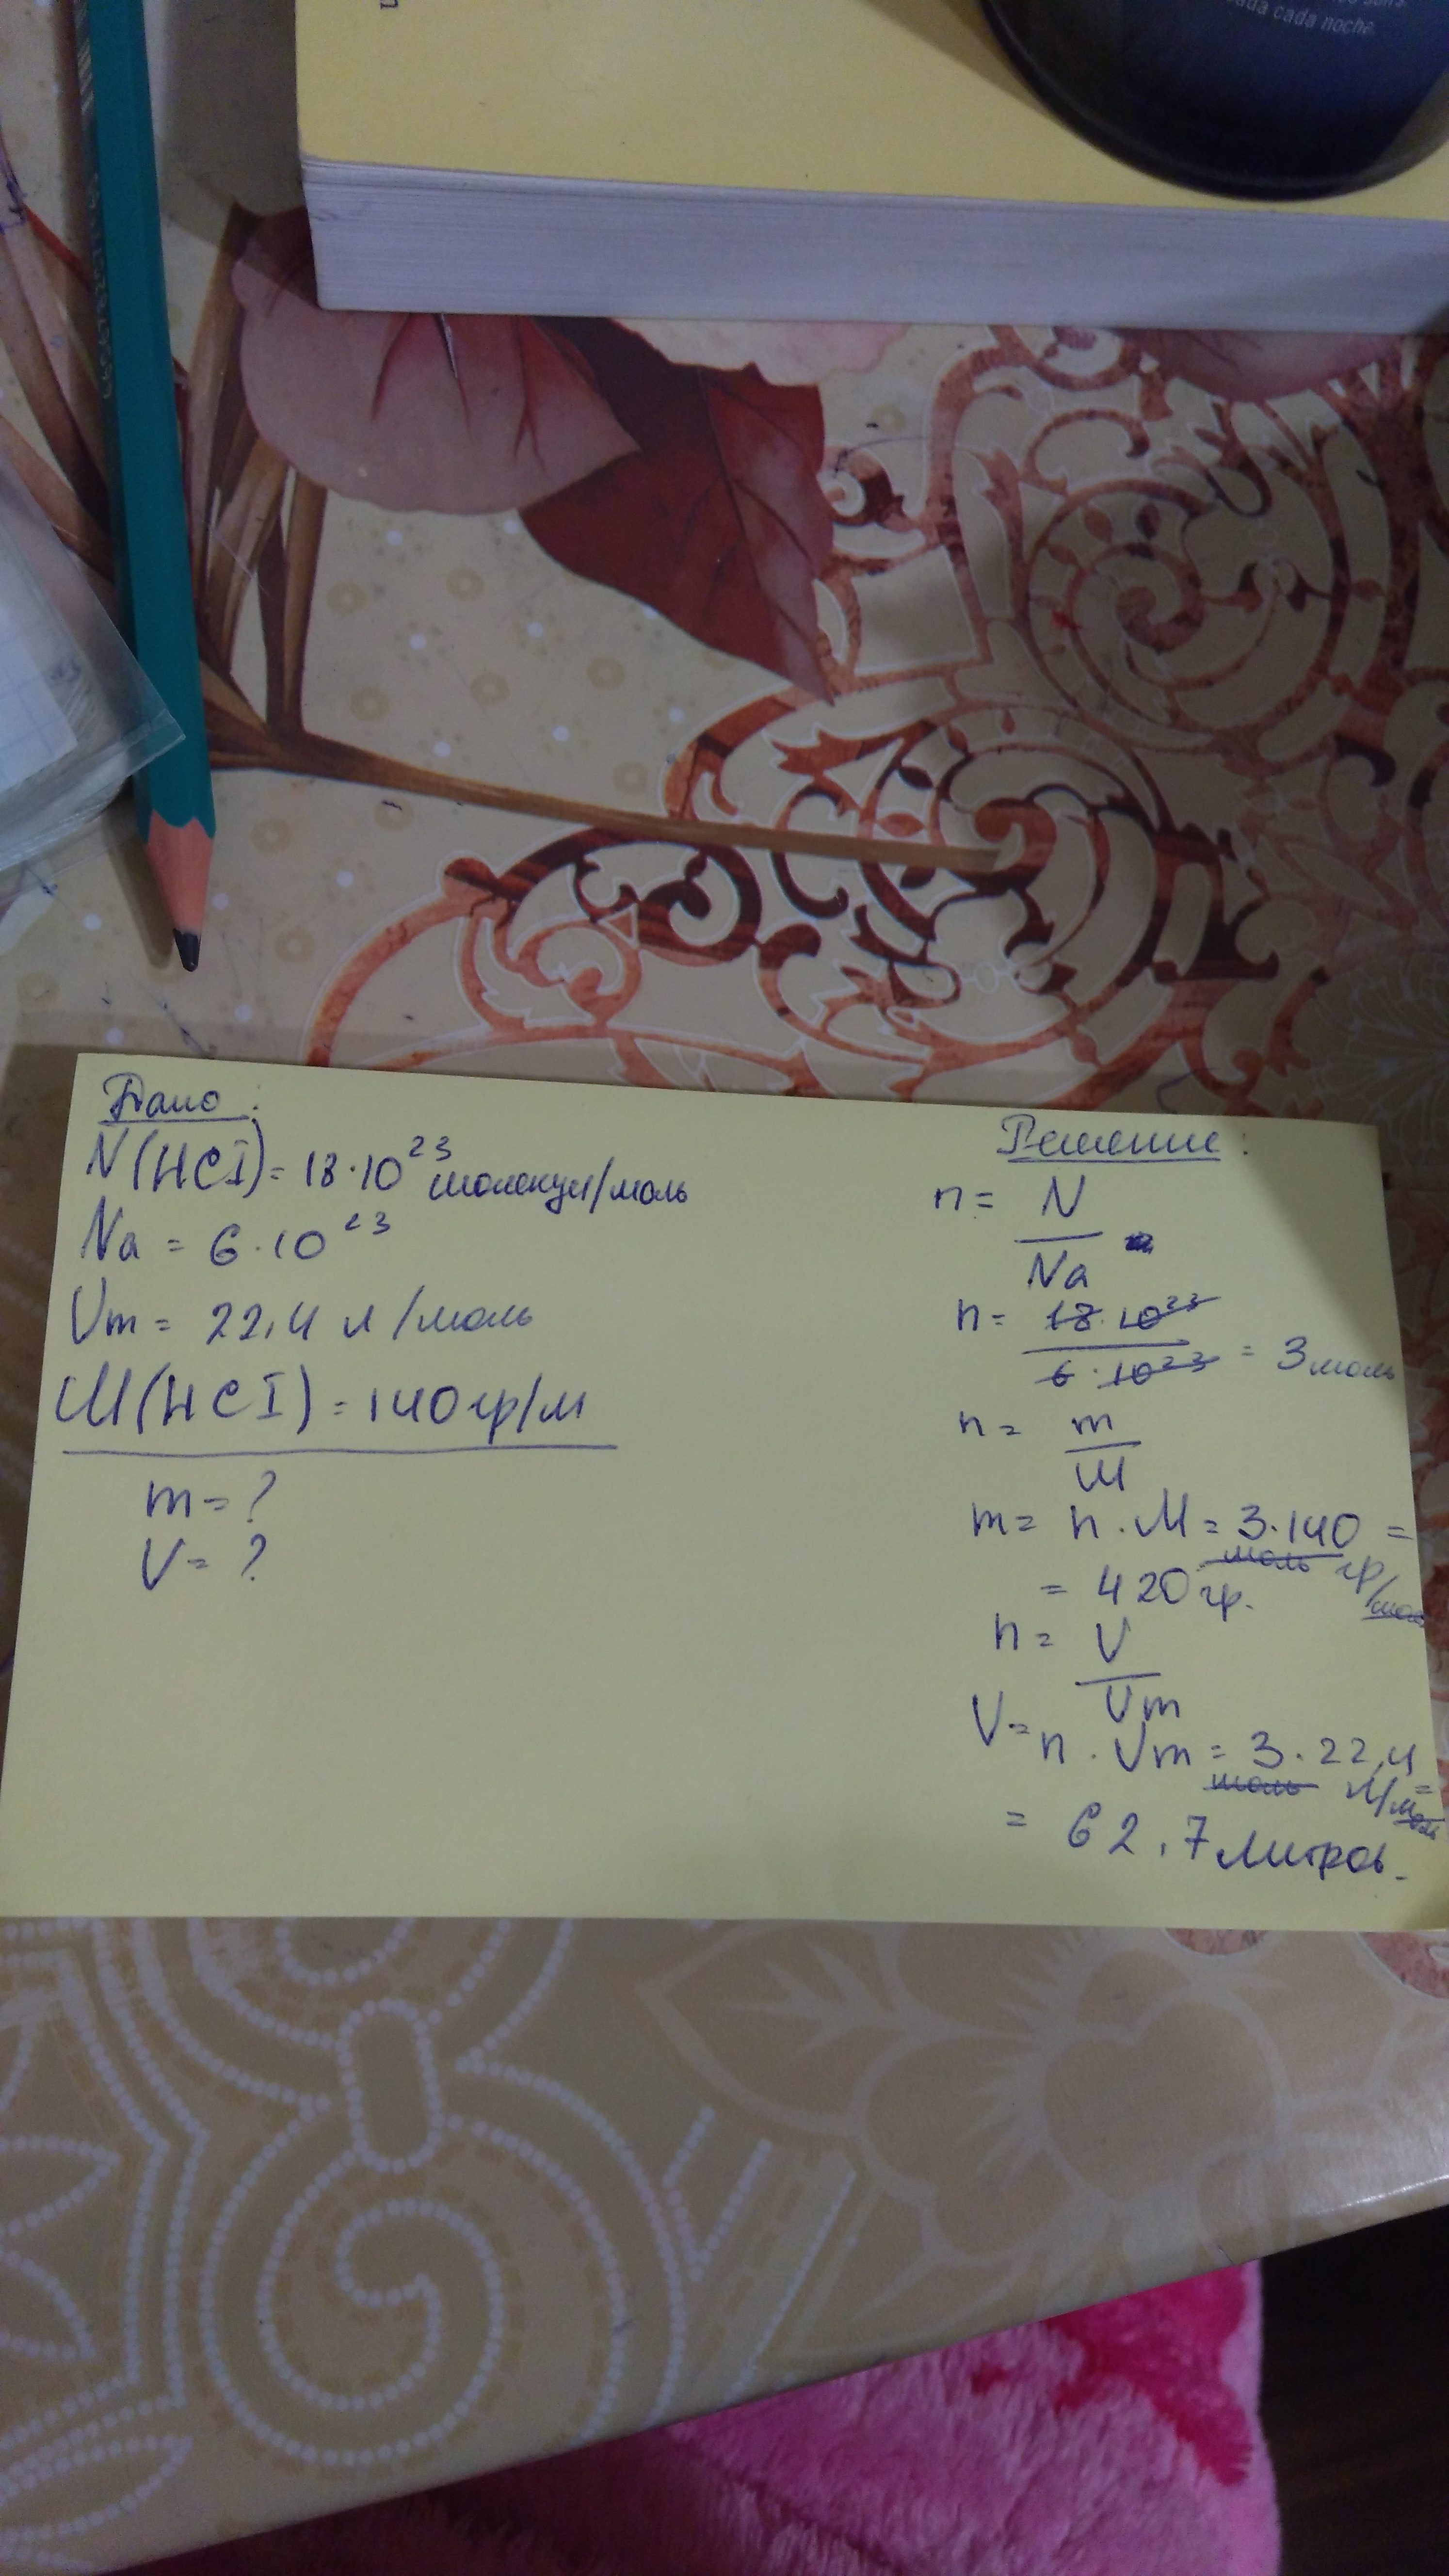 cada cada noche.
Дано:
N(HCI) = 18·10²³ молекул/моль
Na = 6·10²³
Vm = 22,4 л/моль
M(HCI) = 140 гр/м
m = ?
V = ?
Решение:
n = N
Na
n = 18·10²³
6·10²³ = 3 моль
n = m
M
m = n·M = 3·140 =
моль гр/моль
= 420 гр.
n = V
Vm
V = n·Vm = 3·22,4
моль л/моль =
= 62,7 литров.